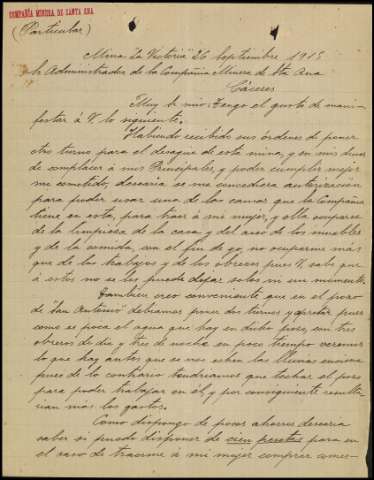 COMPAÑÍA MINERA DE SANTA ANA
(Particular)
Mina "La Victoria" 26 Septiembre 1915
Administrador de la Compañia Minera de Sta Ana
Cáceres
Muy Sr mio: Tengo el gusto de mani-
festar á V. lo siguiente.
Habiendo recibido sus órdenes de poner
otro turno para el desagüe de esta mina, y en mis deseos
de complacer á mis Principales, y poder cumplir mejor
mi cometido, desearia se me concediera autorizacion
para poder usar una de las camas que la Compañia
tiene en esta, para traer á mi mujer, y ella ocuparse
de la limpieza de la casa y del aseo de los muebles
y de la comida, con el fin de yo no ocuparme más
que de los trabajos y de los obreros pues V. sabe que
á estos no se les puede dejar solos ni un momento.
Tambien creo conveniente que en el pozo
de "San Antonio" debiamos poner dos turnos y apretar pues
como es poca el agua que hay en dicho pozo, con tres
obreros de dia y tres de noche en poco tiempo veriamos
lo que hay antes que se nos echen las lluvias encima
pues de lo contrario tendriamos que techar el pozo
para poder trabajar en él, y por consiguiente resulta-
rian más los gastos.
Como dispongo de pocos ahorros desearia
saber si puedo disponer de cien pesetas para en
el caso de traerme á mi mujer comprar comes-